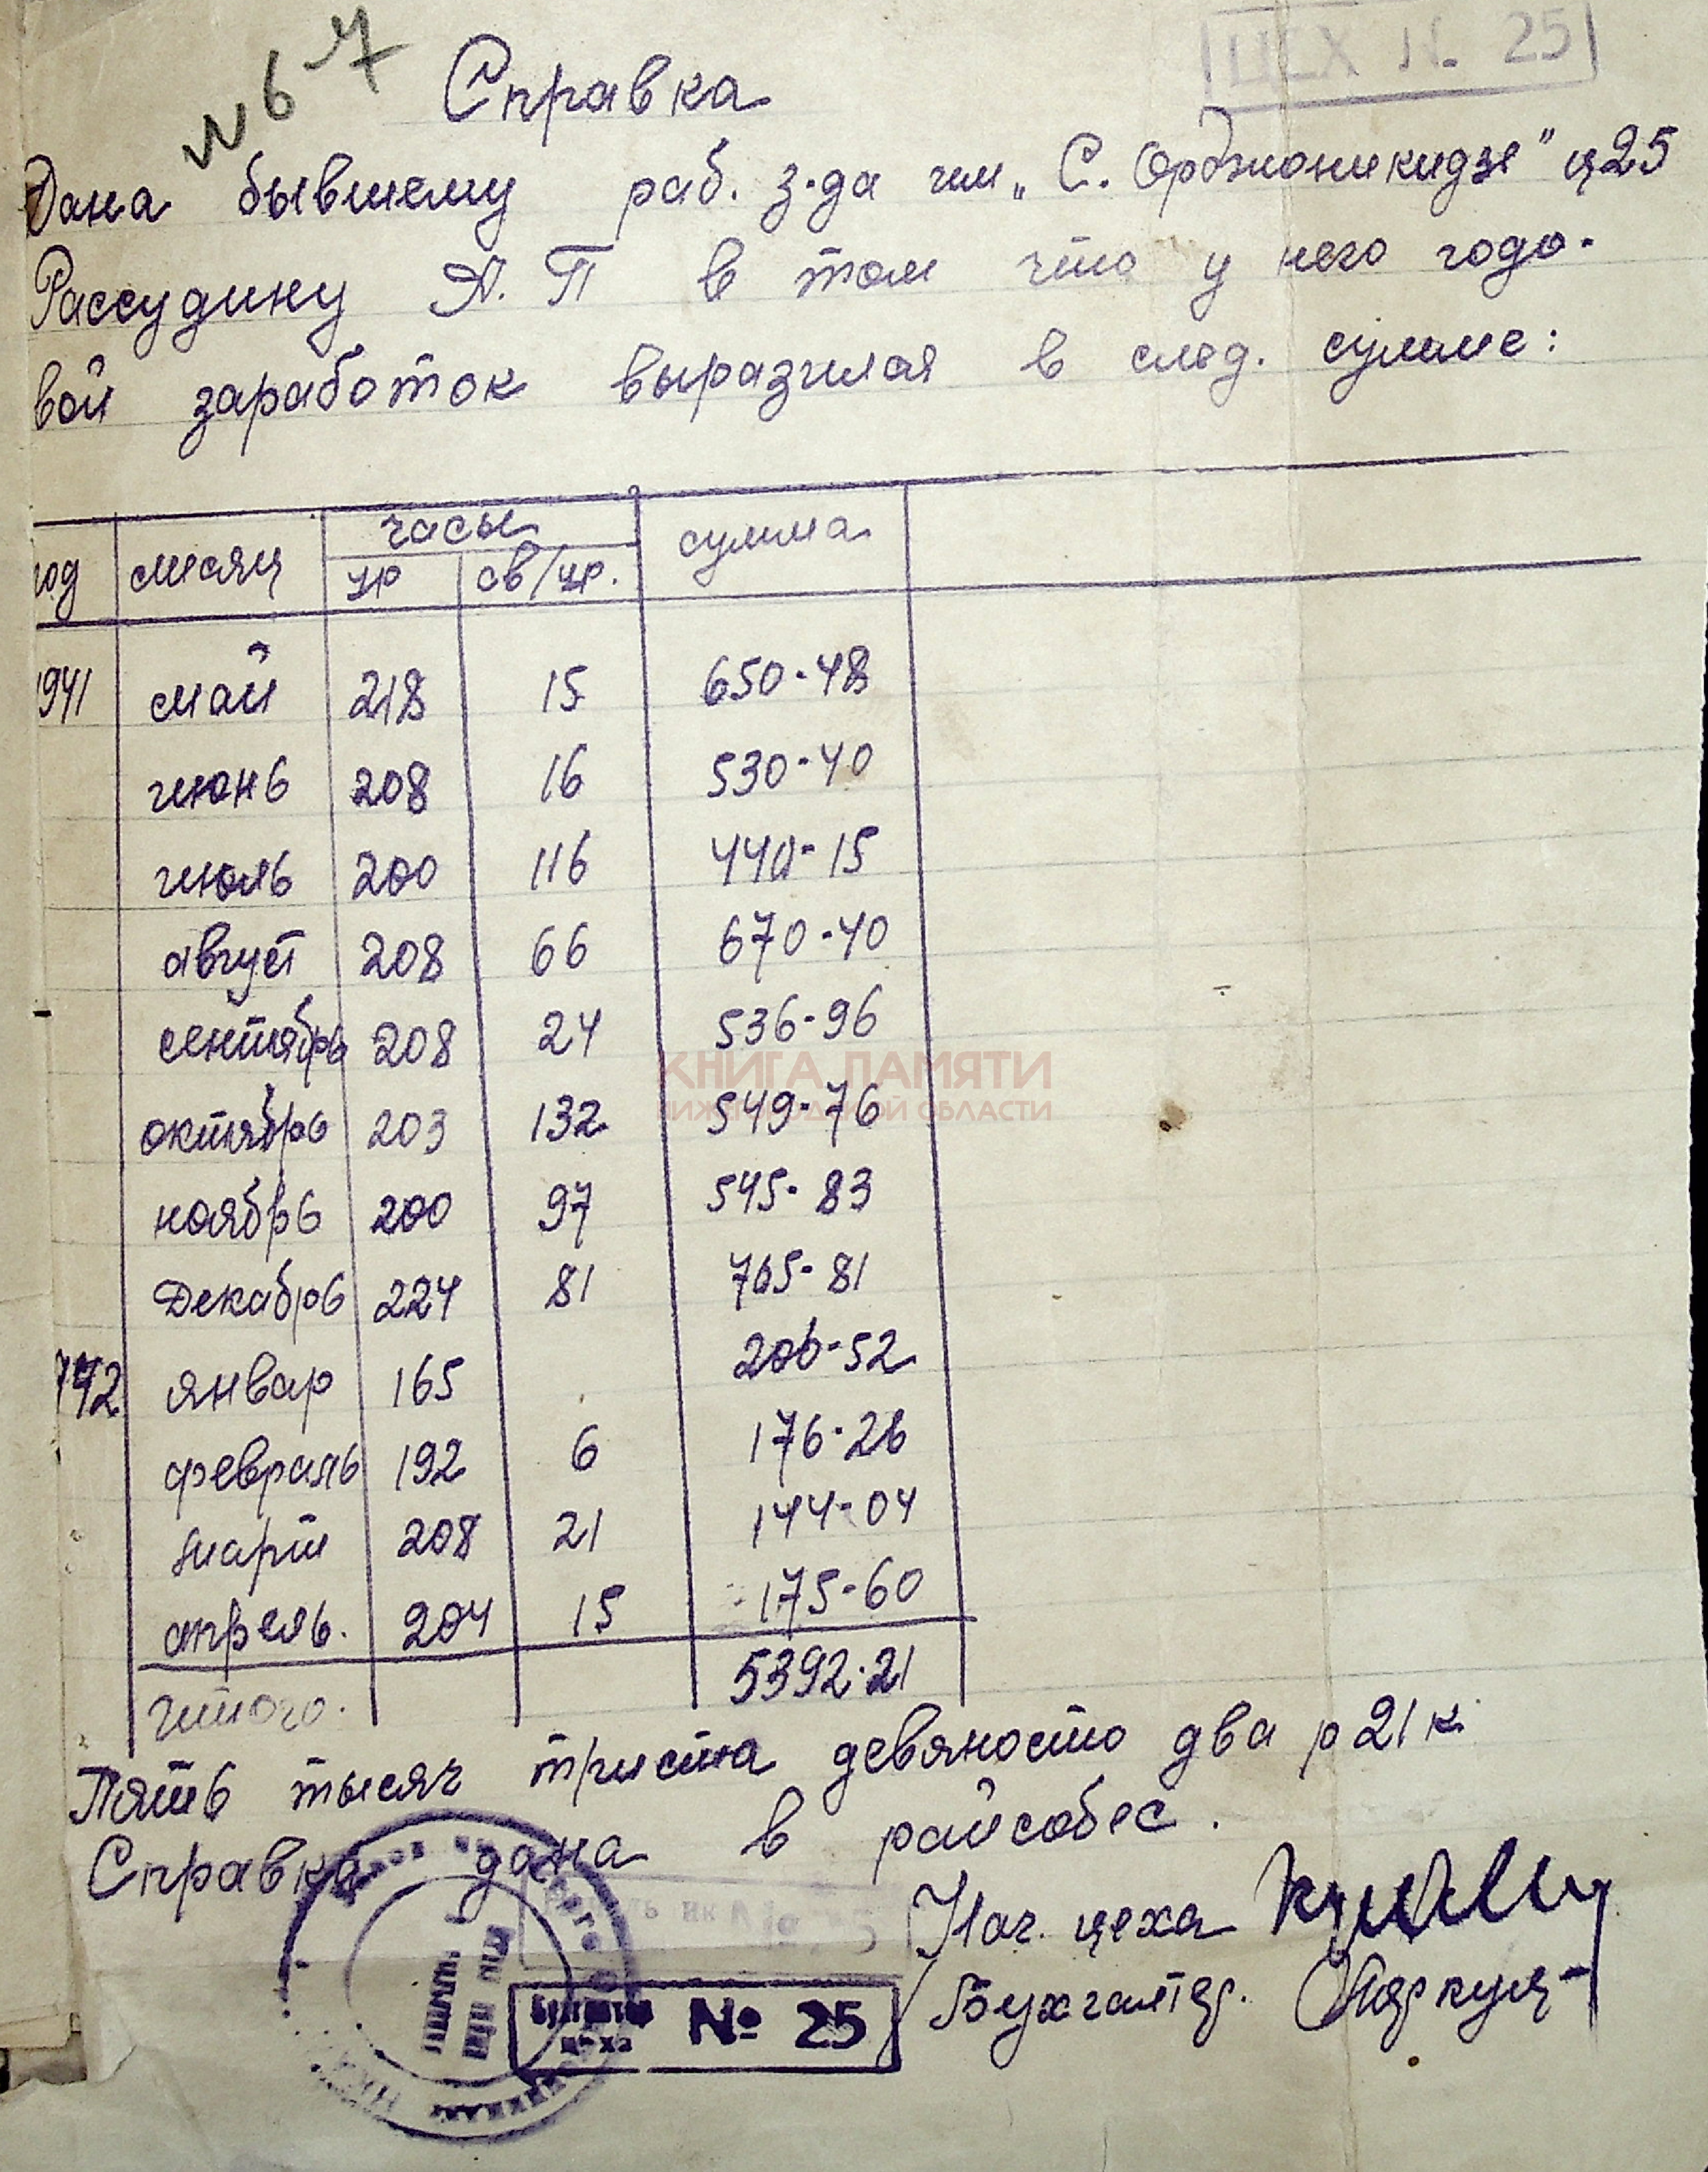 ЦЕХ №. 25
Справка
Дана бывшему раб. з-да им „С. Орджоникидзе" ц 25
Рассудину А. П в том что у него годо-
вой заработок выразился в след. сумме:
год месяц часы сумма
ур св/ур.
1941 май 218 15 650-48
июнь 208 16 530-40
июль 200 116 440-15
август 208 66 670-40
сентябрь 208 24 536-96
октябрь 203 132 549-76
ноябрь 200 97 545-83
Декабрь 224 81 765-81
942 январ 165 206-52
февраль 192 6 176-26
март 208 21 144-04
апрель. 204 15 175-60
итого. 5392-21
Пять тысяч триста девяносто два р 21 к
Справка дана в райсобес.
Нач. цеха
Бухгалтер.
Бухгалтер цеха № 25
КНИГА ПАМЯТИ
НИЖЕГОРОДСКОЙ ОБЛАСТИ